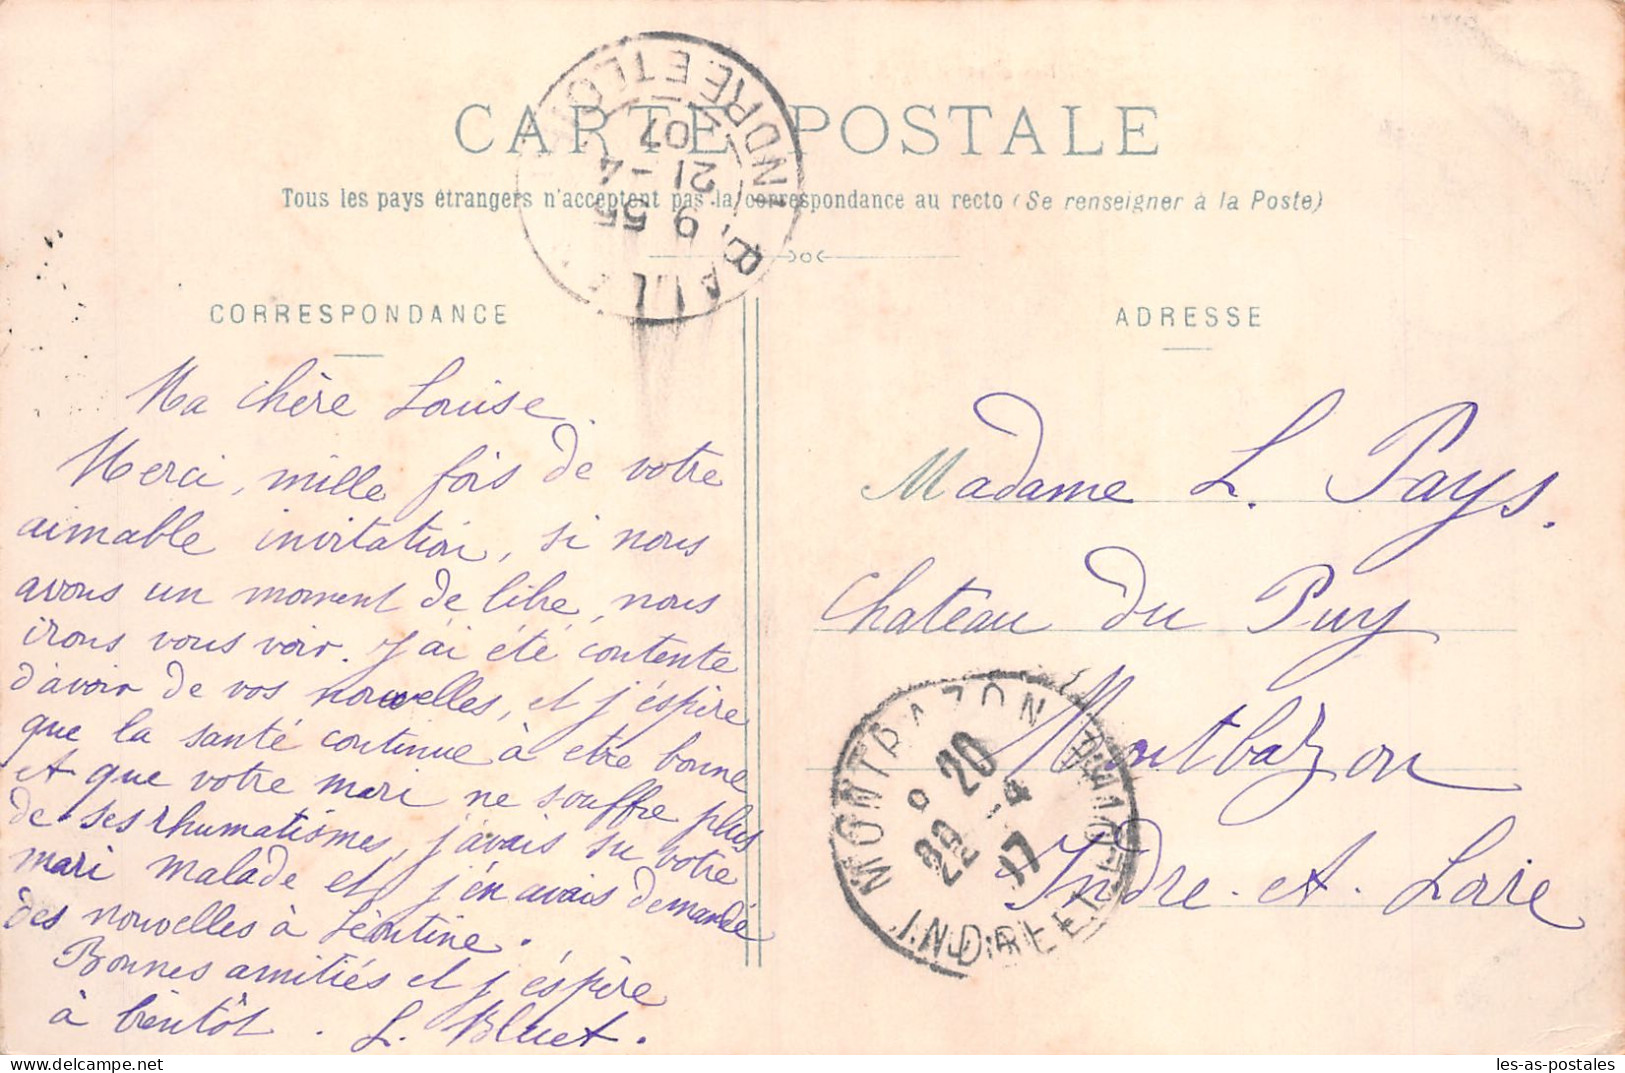 CARTE POSTALE
Tous les pays étrangers n'acceptent pas la correspondance au recto (Se renseigner à la Poste)
CORRESPONDANCE
Ma chère Louise.
Merci, mille fois de votre
aimable invitation, si nous
avons un moment de libre, nous
irons vous voir. J'ai été contente
d'avoir de vos nouvelles, et j'éspère
que la santé continue à etre bonne
et que votre mari ne souffre plus
de ses rhumatismes, j'avais su votre
mari malade et j'en avais demandé
des nouvelles à Léontine.
Bonnes amitiés et j'éspère
à bientôt. L. Bluet.
ADRESSE
Madame L. Pays.
Château du Puy
Montbazon
Indre-et-Loire
INDRE ET LOIRE
21 - 4
07
9 55
MONTBAZON
20
22 -4
INDRE ET LOIRE
les-as-postales